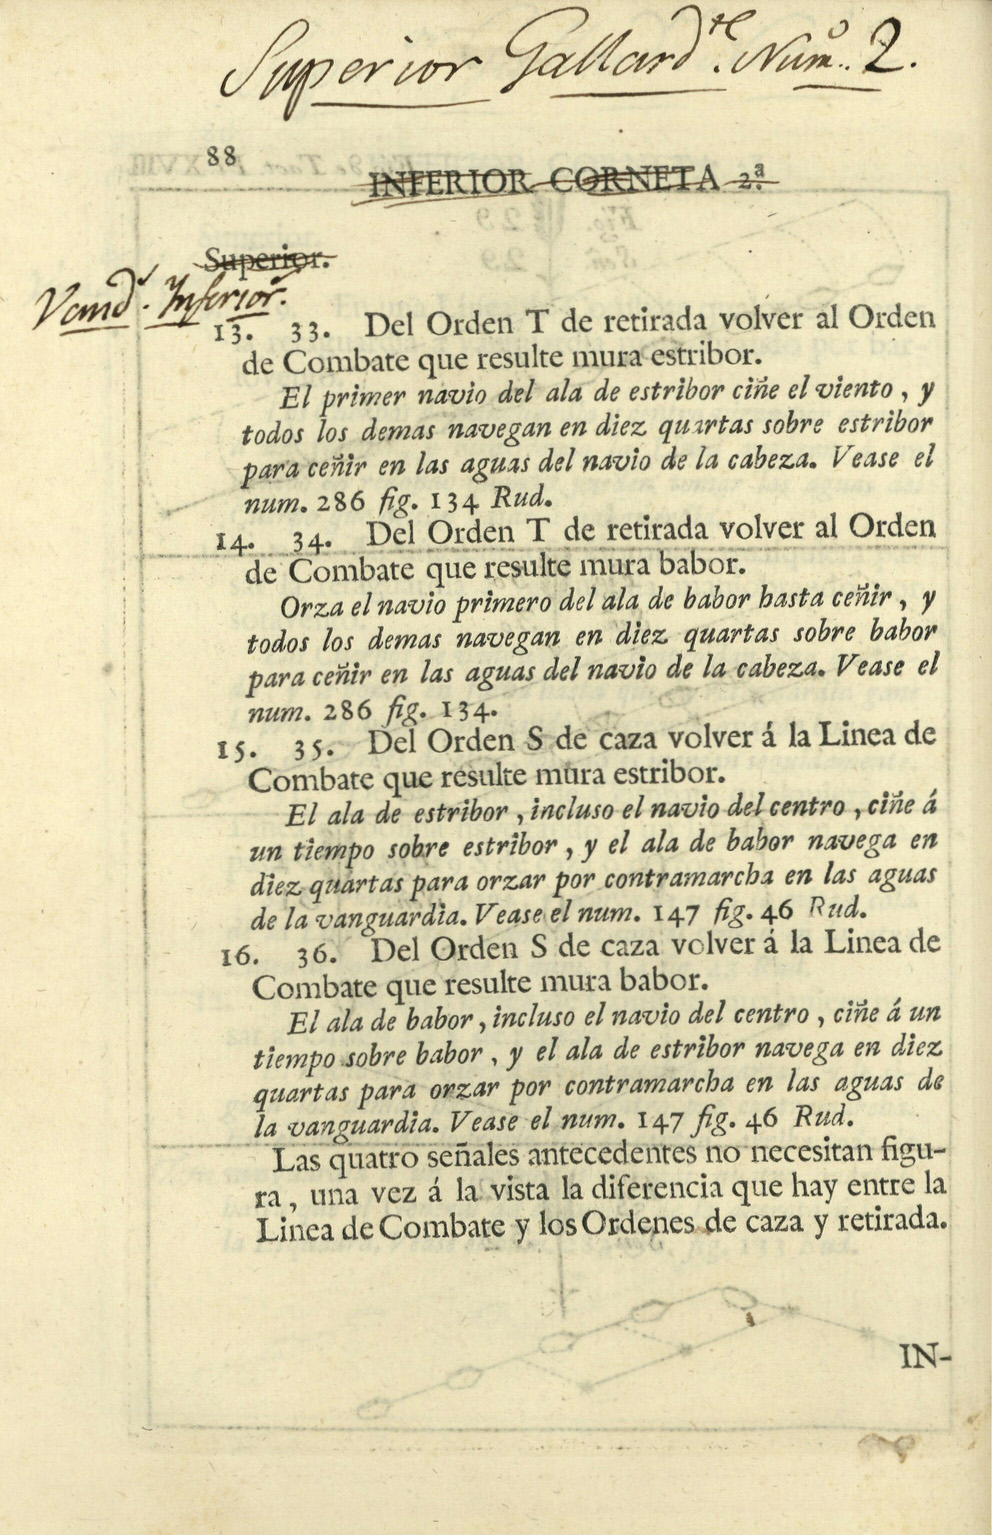 Superior Gallard.te Num.o 2.
88
INFERIOR CORNETA 2.ª
Superior.
Vand.ª Inferior.
13. 33. Del Orden T de retirada volver al Orden
de Combate que resulte mura estribor.
El primer navio del ala de estribor ciñe el viento, y
todos los demas navegan en diez quartas sobre estribor
para ceñir en las aguas del navio de la cabeza. Vease el
num. 286 fig. 134 Rud.
14. 34. Del Orden T de retirada volver al Orden
de Combate que resulte mura babor.
Orza el navio primero del ala de babor hasta ceñir, y
todos los demas navegan en diez quartas sobre babor
para ceñir en las aguas del navio de la cabeza. Vease el
num. 286 fig. 134.
15. 35. Del Orden S de caza volver á la Linea de
Combate que resulte mura estribor.
El ala de estribor, incluso el navio del centro, ciñe á
un tiempo sobre estribor, y el ala de babor navega en
diez quartas para orzar por contramarcha en las aguas
de la vanguardia. Vease el num. 147 fig. 46 Rud.
16. 36. Del Orden S de caza volver á la Linea de
Combate que resulte mura babor.
El ala de babor, incluso el navio del centro, ciñe á un
tiempo sobre babor, y el ala de estribor navega en diez
quartas para orzar por contramarcha en las aguas de
la vanguardia. Vease el num. 147 fig. 46 Rud.
Las quatro señales antecedentes no necesitan figu-
ra, una vez á la vista la diferencia que hay entre la
Linea de Combate y los Ordenes de caza y retirada.
IN-